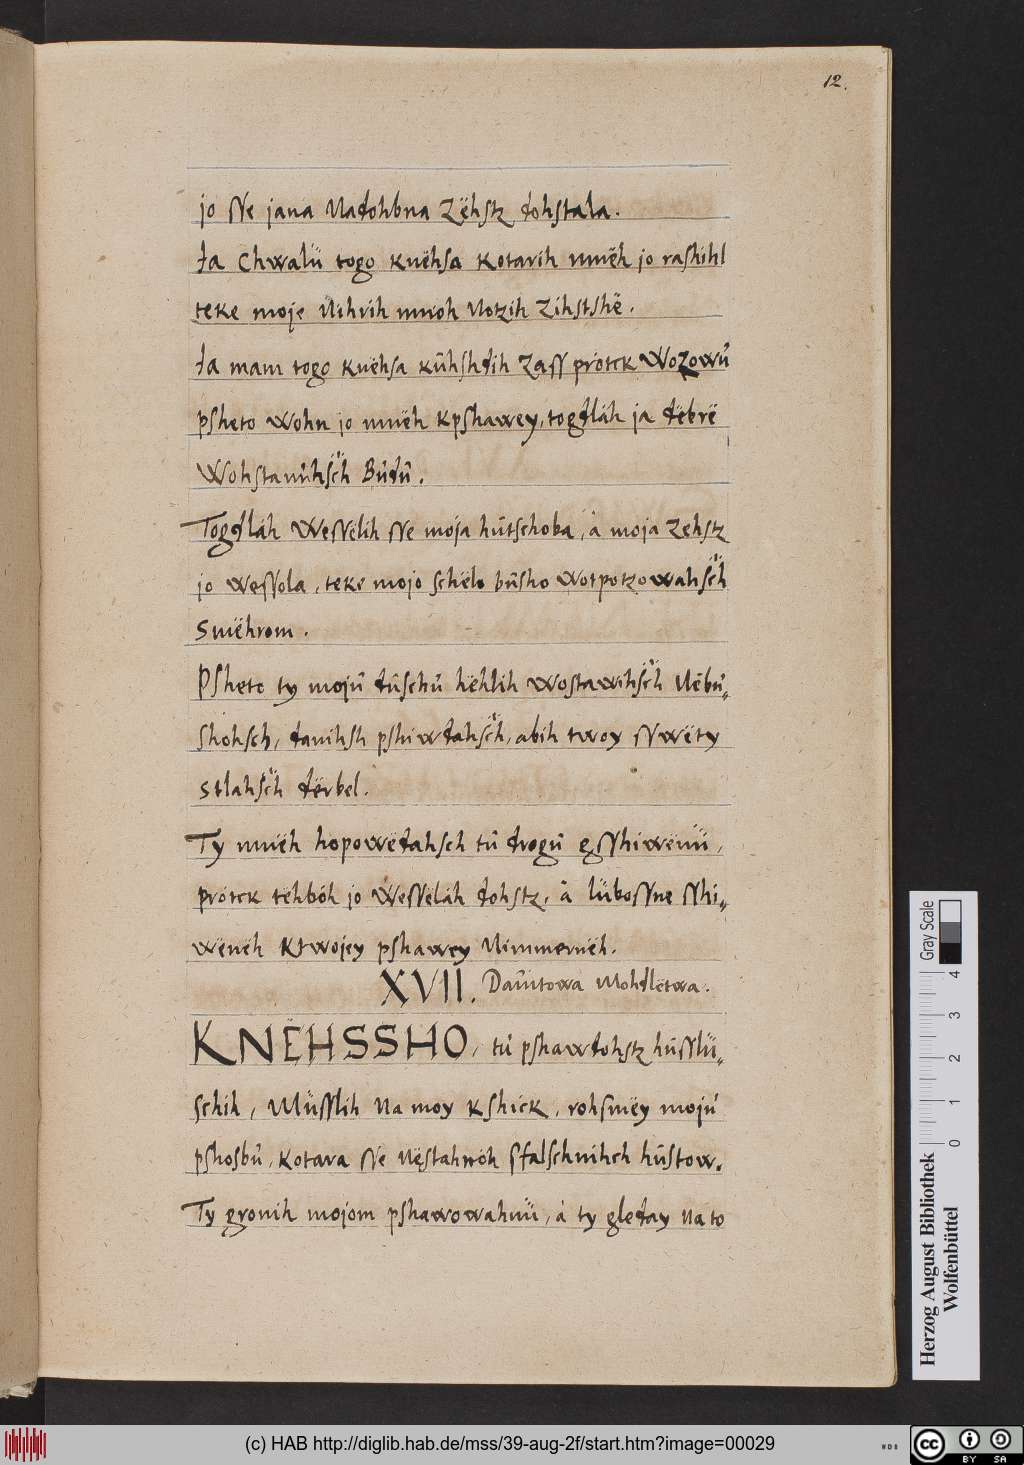 12.
jo sſe jana Nadohbna Zëhstz dohstala.
Ja Chwalü togo knëhsa kotarih mnëh jo rashihl
teke moje Nihrih mnoh Notzih Zihstshë.
Ja mam togo knëhsa kűhshdih Zasſ prötck Wozowű
psheto wohn jo mnëh kpshawey, togdláh ja dëbrë
Wohstanűhsch Bűdű.
Togdláh Wesſëlih sſe moja hűtschoba, à moja Zehstz
jo wesſola, teke mojo schëlo bűsho wotpotzowahsch
Smëhrom.
Psheto ty mojű dűschű hëhlih wostawihsch Nëbű„
shohsch, danihsh pshiwdahsch, abih twoy sſwëty
stlahsch dërbel.
Ty mnëh hopowëdahsch tű drogű gsſhiwënü,
prötck tëhböh jo Wesſëláh dohstz, à lübosſne sſhi„
wëneh Ktwojey pshawey Nimmernëh.
XVII. Dawitowa Mohdlëtwa.
KNËHSSHO, tű pshawdohstz hűsſlü„
schih, Műsſlih na moy kshick, rohsmëy mojű
pshosbű, kotara sſe Nëstahnöh sfalschnihch hűstow.
Ty gronih mojom pshawowahnü, à ty glëday na to
Gray Scale
0 1 2 3 4
Herzog August Bibliothek
Wolfenbüttel
(c) HAB http://diglib.hab.de/mss/39-aug-2f/start.htm?image=00029
WDB
cc BY SA